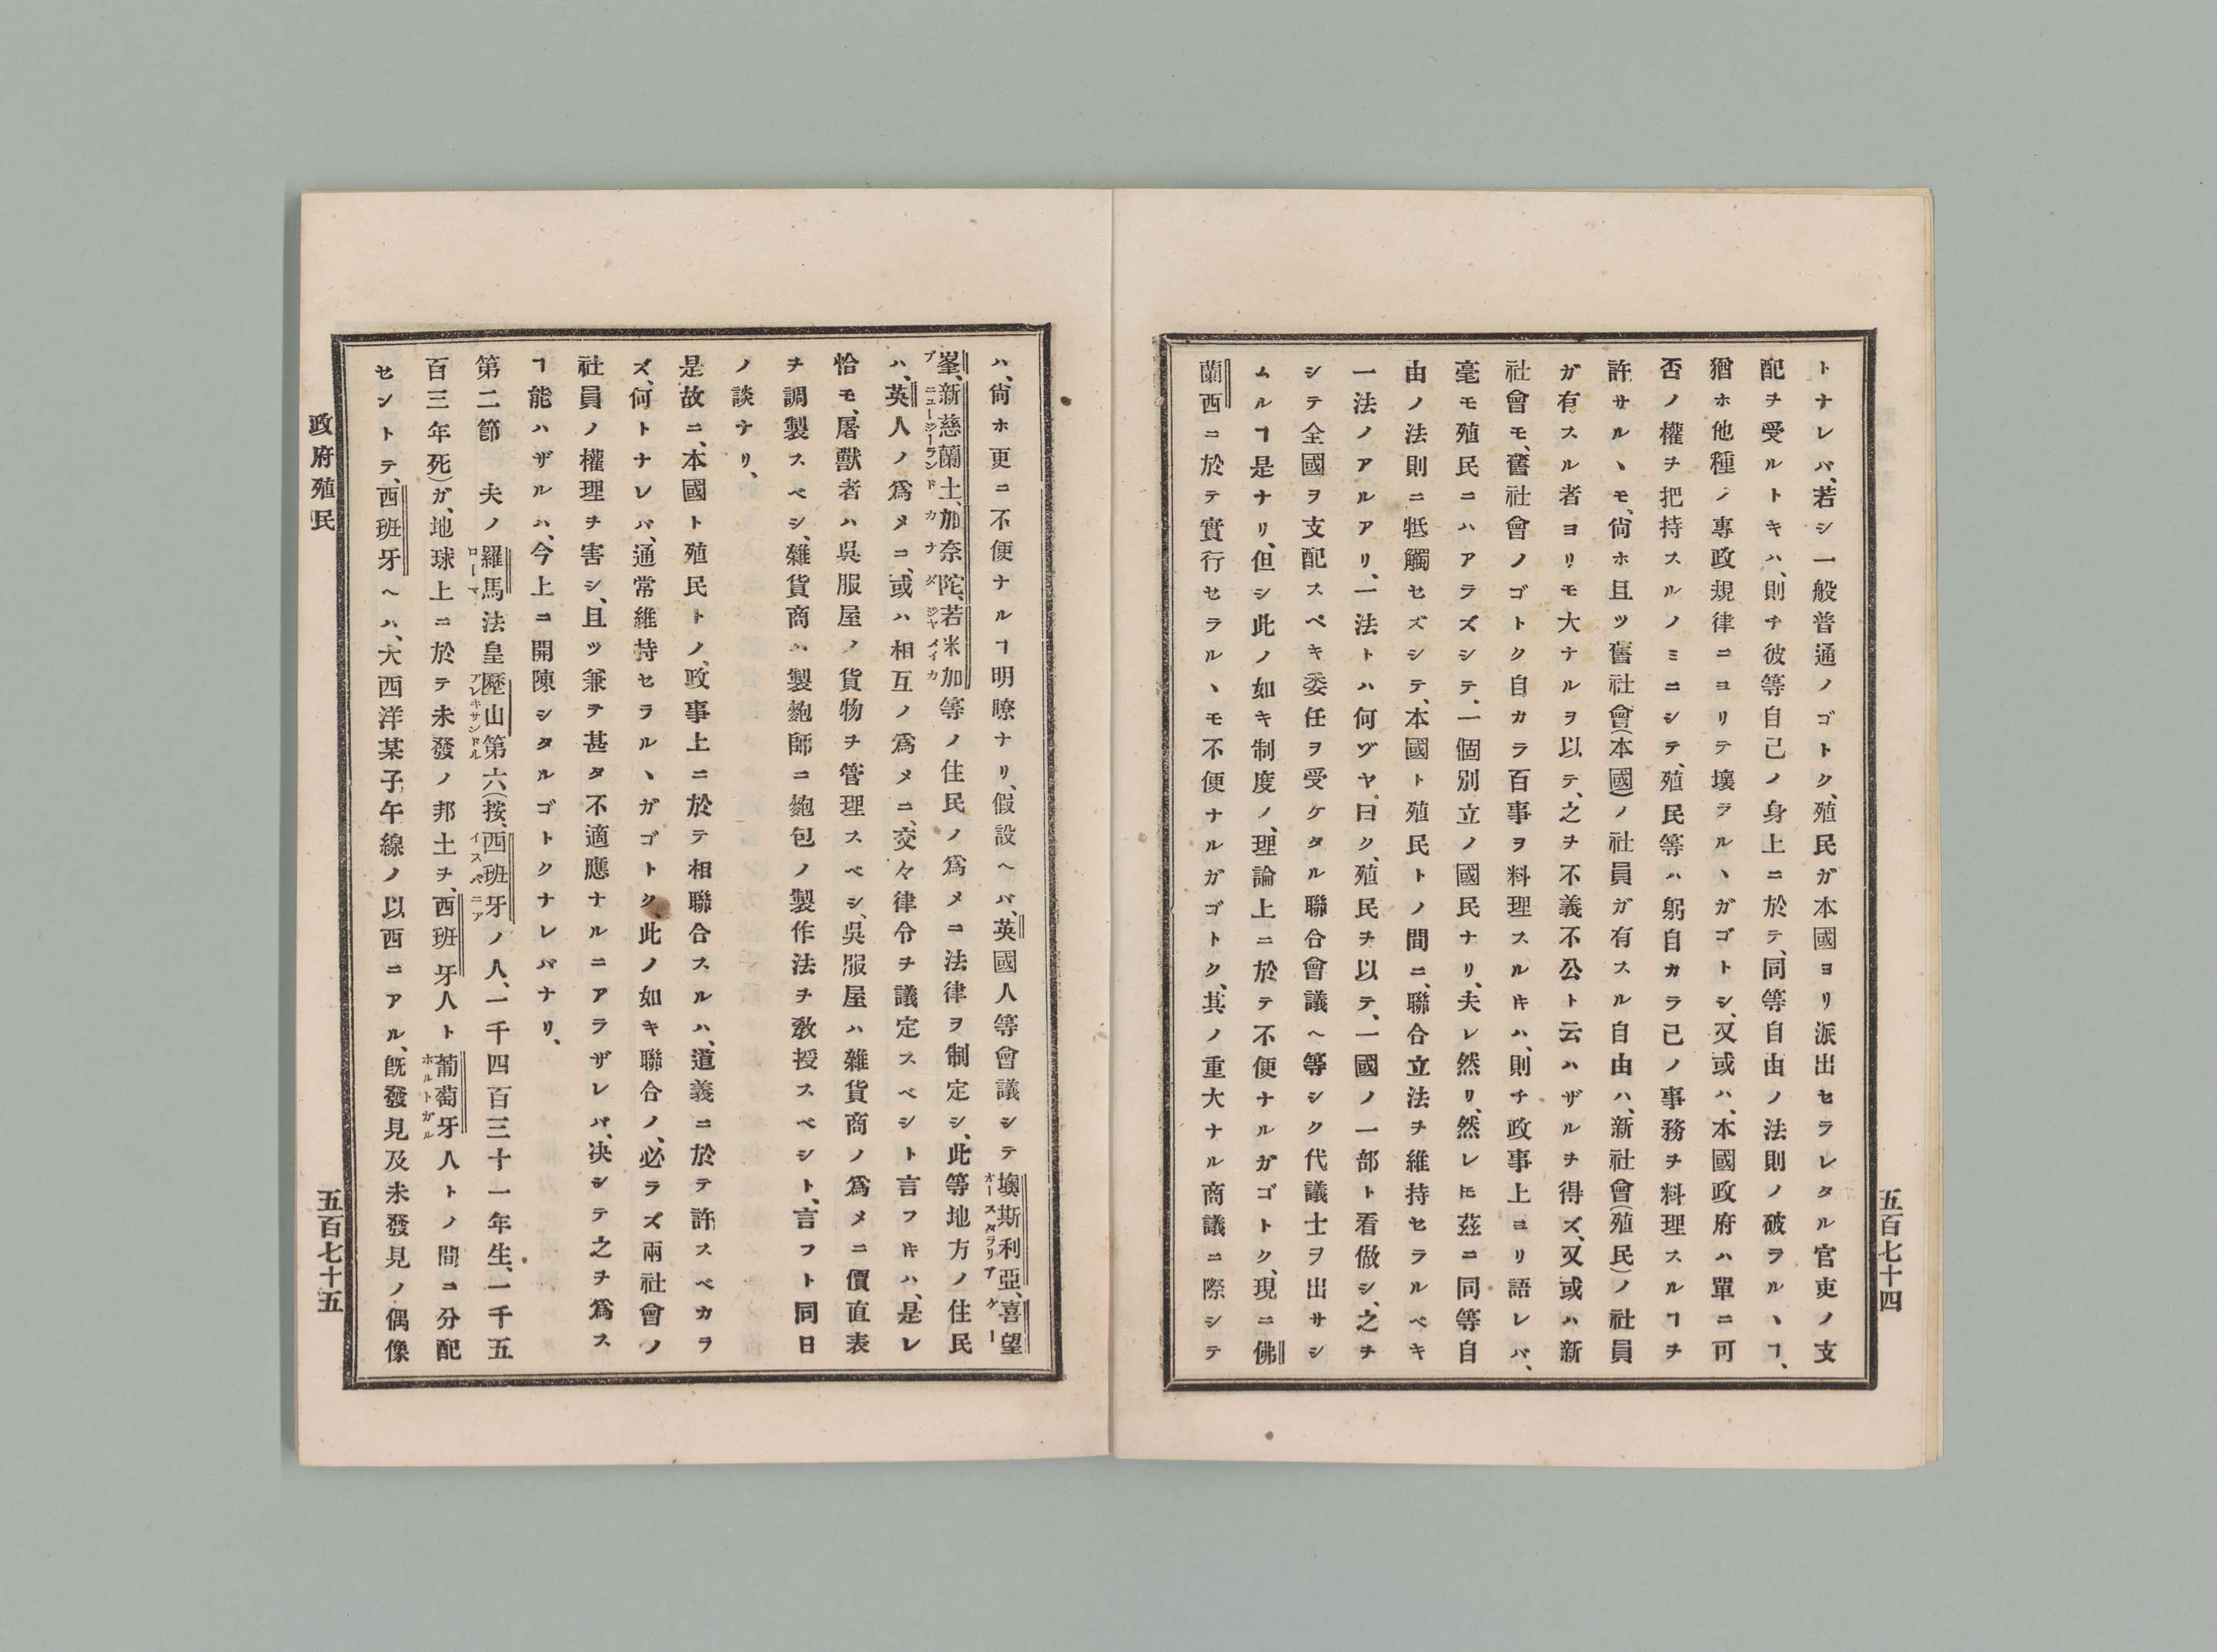 トナレバ、若シ一般普通ノゴトク、殖民ガ本國ヨリ派出セラレタル官吏ノ支
配ヲ受ルトキハ、則チ彼等自己ノ身上ニ於テ、同等自由ノ法則ノ破ラルヽヿ、
猶ホ他種ノ專政規律ニヨリテ壞ラルヽガゴトシ、又或ハ、本國政府ハ單ニ可
否ノ權ヲ把持スルノミニシテ、殖民等ハ躬自カラ己ノ事務ヲ料理スルヿヲ
許サルヽモ、尙ホ且ツ舊社會(本國)ノ社員ガ有スル自由ハ、新社會(殖民)ノ社員
ガ有スル者ヨリモ大ナルヲ以テ、之ヲ不義不公ト云ハザルヲ得ズ、又或ハ新
社會モ、舊社會ノゴトク自カラ百事ヲ料理スルキハ、則チ政事上ヨリ語レバ、
毫モ殖民ニハアラズシテ、一個別立ノ國民ナリ、夫レ然リ、然レㇳモ茲ニ同等自
由ノ法則ニ牴觸セズシテ、本國ト殖民トノ間ニ、聯合立法ヲ維持セラルベキ
一法ノアルアリ、一法トハ何ゾヤ、曰ク、殖民ヲ以テ、一國ノ一部ト看做シ、之ヲ
シテ全國ヲ支配スベキ委任ヲ受ケタル聯合會議ヘ等シク代議士ヲ出サシ
ムルヿ是ナリ、但シ此ノ如キ制度ノ、理論上ニ於テ不便ナルガゴトク、現ニ佛
蘭西ニ於テ實行セラルヽモ不便ナルガゴトク、其ノ重大ナル商議ニ際シテ
五百七十四
ハ、尙ホ更ニ不便ナルヿ明瞭ナリ、假設ヘバ、英國人等會議シテ墺斯利亞、喜望
峯、新慈蘭土、加奈陀、若米加等ノ住民ノ爲メニ法律ヲ制定シ、此等地方ノ住民
ハ、英人ノ爲メニ、或ハ相互ノ爲メニ、交々律令ヲ議定スベシト言フキハ、是レ
恰モ、屠獸者ハ吳服屋ノ貨物ヲ管理スベシ、吳服屋ハ雜貨商ノ爲メニ價直表
ヲ調製スベシ、雜貨商ハ製麭師ニ麭包ノ製作法ヲ敎授スベシト、言フト同日
ノ談ナリ、
是故ニ、本國ト殖民トノ、政事上ニ於テ相聯合スルハ、道義ニ於テ許スベカラ
ズ、何トナレバ、通常維持セラルヽガゴトク、此ノ如キ聯合ノ、必ラズ兩社會ノ
社員ノ權理ヲ害シ、且ツ兼テ甚タ不適應ナルニアラザレバ、決シテ之ヲ爲ス
ヿ能ハザルハ、今上ニ開陳シタルゴトクナレバナリ、
第二節　夫ノ羅馬法皇歷山第六(按、西班牙ノ人、一千四百三十一年生、一千五
百三年死)ガ、地球上ニ於テ未發ノ邦土ヲ、西班牙人ト葡萄牙人トノ間ニ分配
セシトテ、西班牙ヘハ、大西洋某子午線ノ以西ニアル、旣發見及未發見ノ偶像
政府殖民
五百七十五